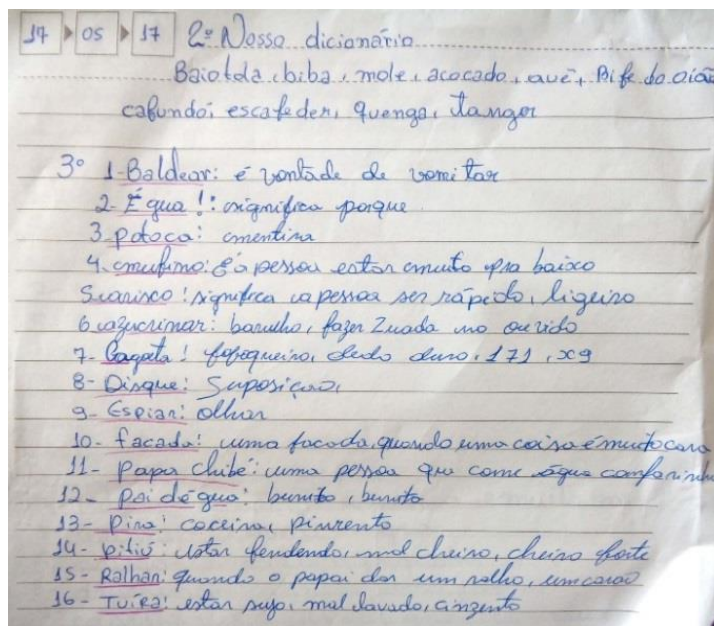 17 05 17 2º Nosso dicionário
Baiotola, biba, mole, acocado, auê, Bife do oião
cafundoi escafeder, quenga, tanger
3º 1-Baldear: é vontade de vomitar
2- É gua!: significa porque
3-potoca: mentira
4. mufino: é a pessoa estar muito pra baixo
5 arisco: significa a pessoa ser rápido, ligeiro
6 azucrinar: barulho, fazer Zuada no ouvido
7- Cagueta! fofoqueiro, dedo duro, 171, x9
8- Disque: Suposição,
9- Espiar: olhar
10- facada: uma facada, quando uma coisa é muito cara
11- Papa Chibé: uma pessoa que come água com farinha
12- Pai dégua: bunito, bunito
13- Pira: coceira, pirrento
14- pitiú: estar fendendo, mal cheiro, cheiro forte
15- Ralhar: quando o papai dar um ralho, um carão
16- Tuíra: estar sujo, mal lavado, cinzento